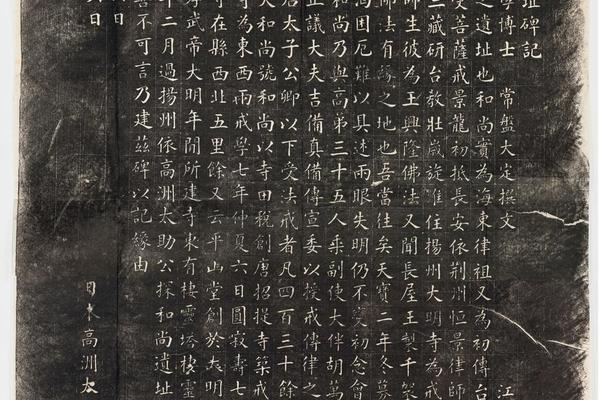 址碑記
學博士 常盤大定撰文 江
之遺址也和尚實為海東律祖又為初傳台
受菩薩戒景龍初抵長安依荊州恒景律師
三藏研台教壯歲旋淮住揚州大明寺為戒
師生彼為王興隆佛法又聞長屋王製千袈
佛法有緣之地也吾當往矣天寶二年冬募
淘困厄難以具述兩眼失明仍不變初念會
和尚乃與高弟三十五人乘副使大伴胡萬
正議大夫吉備真備傳宣委以授戒傳律之
太子公卿以下受法戒者凡四百三十餘
大和尚號和尚以寺田稅創唐招提寺築戒
寺為東西兩戒學七年仲夏六日圓寂壽七
寺在縣西北五里餘又云平山堂創於大明
孝武帝大明年間所建寺東有棲靈塔棲靈
年二月過揚州依高洲太助公探和尚遺址
喜不可言乃建茲碑以記緣由
日
日 日本高洲太